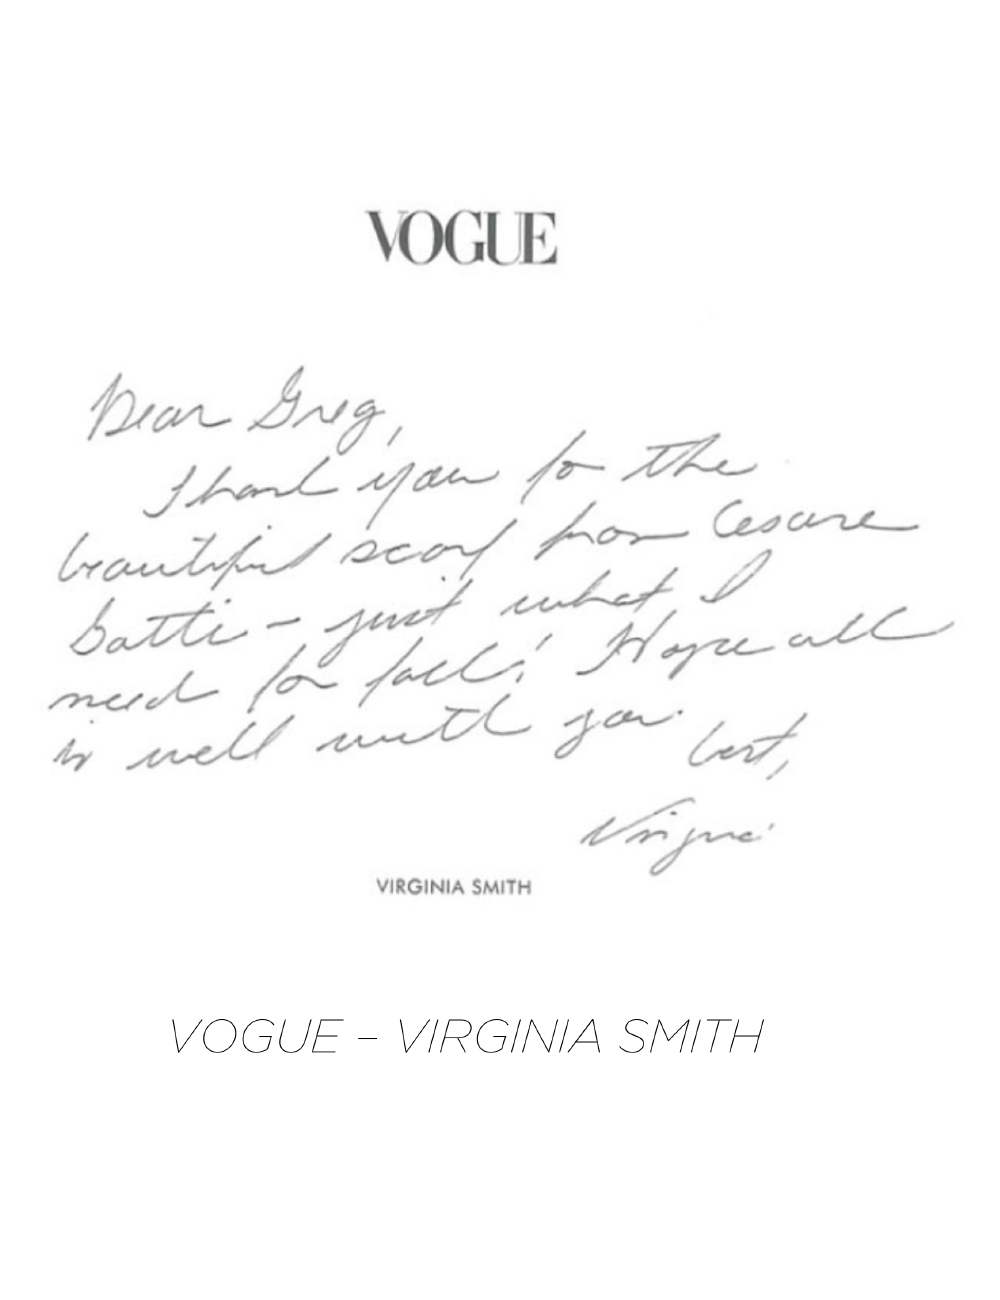 VOGUE
Dear Greg,
Thank you for the
beautiful scarf from Cesare
Gatti - just what I
need for fall! Hope all
is well with you.
best,
Virginia
VIRGINIA SMITH
VOGUE – VIRGINIA SMITH